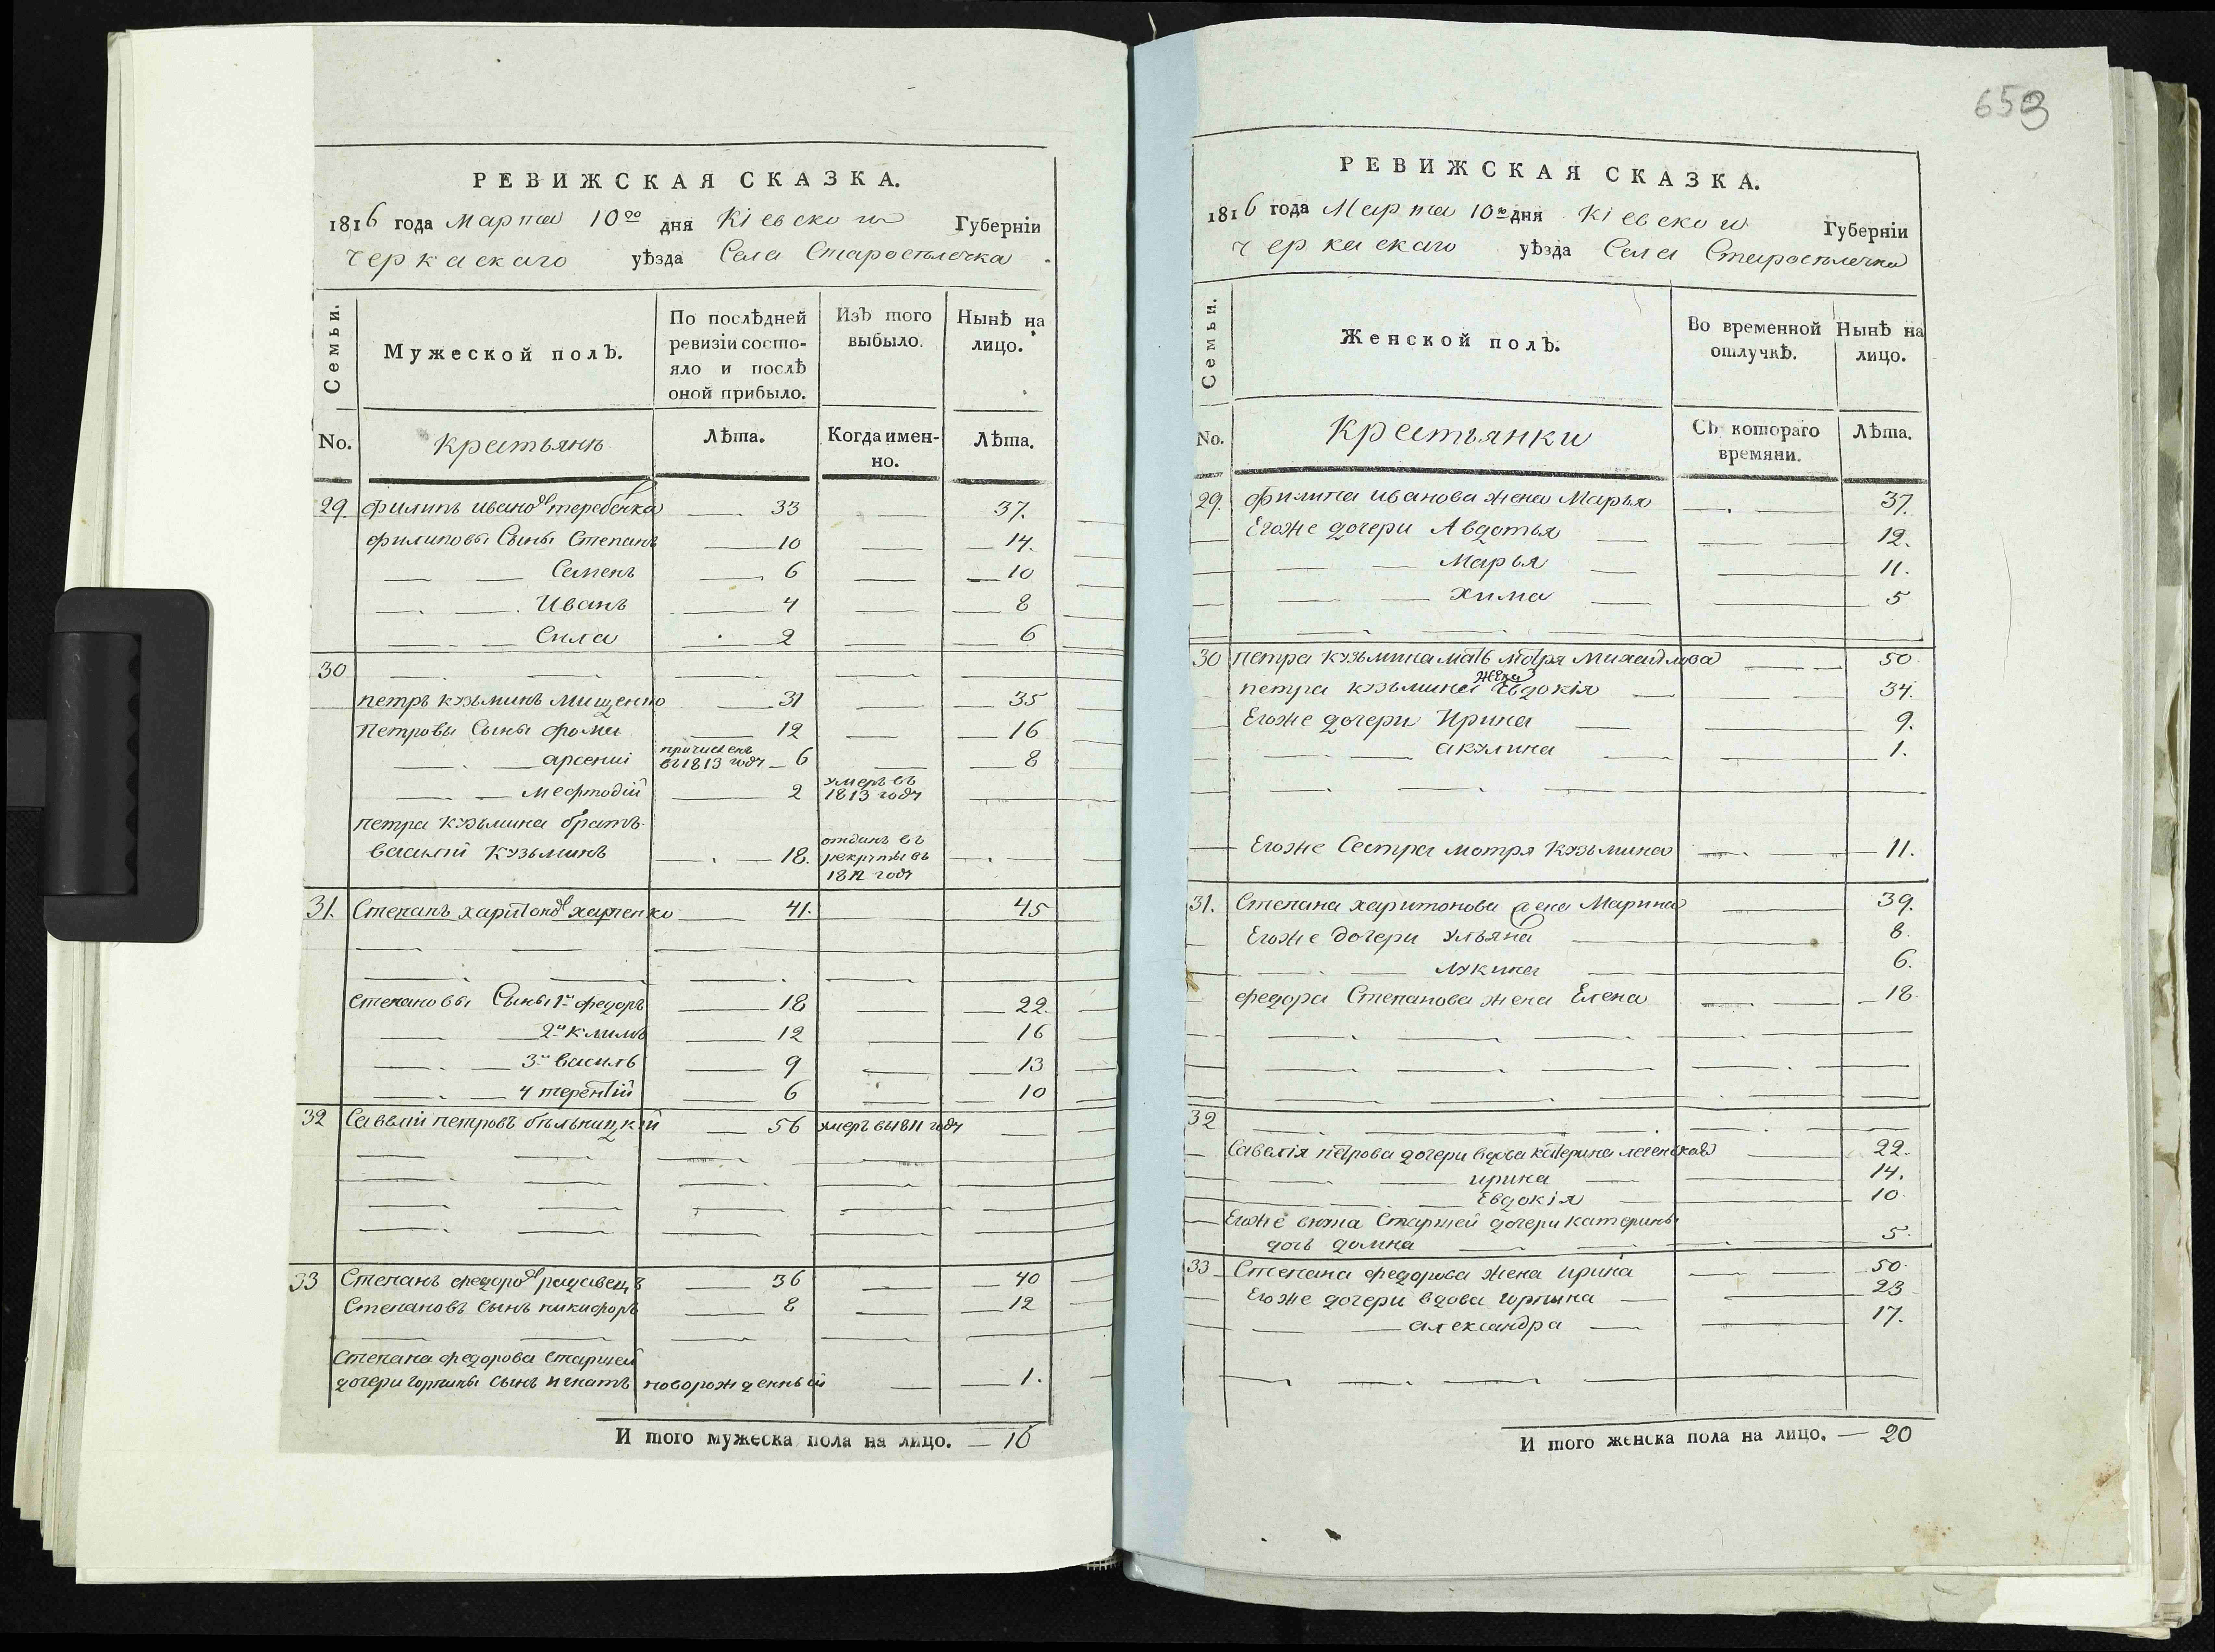 РЕВИЖСКАЯ СКАЗКА.
1816 года Марта 10го дня Кіевской Губерніи
Черкаскаго уѣзда Села
Семьи.
Мужеской полъ.
По послѣдней ревизіи состояло и послѣ оной прибыло.
Изъ того выбыло.
Нынѣ на лицо.
No.
Крестьянѣ
Лѣта.
Когда именно.
Лѣта.
29. Филипъ Ивановъ теребенко 33 37.
Филиповы Сыны Степанъ 10 14.
Семенъ 6 10
Иванъ 4 8
Сила 2 6
30
петръ кузьминъ Мищенко 31 35
Петровы Сыны Фома 12 16
арсений причисленъ въ 1813 году 6 8
мефтодий 2 умеръ въ 1813 году
петра кузьмина братъ
василий кузьминъ 18. отданъ въ рекруты въ 1812 году
31. Степанъ харитоновъ харченко 41. 45
степановы Сыны 1й федоръ 18 22.
2й климъ 12 16
3й василь 9 13
4 терентий 6 10
32 Савелий петровъ бѣльницкий 56 умеръ въ 1811 году
33 Степанъ федоровъ 36 40
Степановъ Сынъ никифоръ 8 12
Степана федорова Старшей
дочери горпины Сынъ игнатъ новорожденный 1.
И того мужеска пола на лицо. 16
653
РЕВИЖСКАЯ СКАЗКА.
1816 года Марта 10го дня Кіевской Губерніи
Черкаскаго уѣзда Села
Семьи.
Женской полъ.
Во временной отлучкѣ.
Нынѣ на лицо.
No.
Крестьянки
Съ котораго времяни.
Лѣта.
29. Филипа иванова жена Марья 37.
Егоже дочери Авдотья 12.
Марья 11.
Хима 5
30 петра кузьмина мать мотря Михайлова 50.
петра кузьмина жена Евдокія 34.
Егоже дочери Ирина 9.
акулина 1.
Егоже Сестра мотря Кузьмина 11.
31. Степана харитонова жена Марина 39.
Егоже дочери ульяна 8.
Лукина 6.
федора Степанова жена Елена 18
32
Савелія петрова дочери вдова катерина 22.
ирина 14.
Евдокія 10.
Егоже Старшей дочери катерины
дочь домна 5.
33 Степана федорова жена ирина 50.
Егоже дочери вдова горпина 23
александра 17.
И того женска пола на лицо. 20